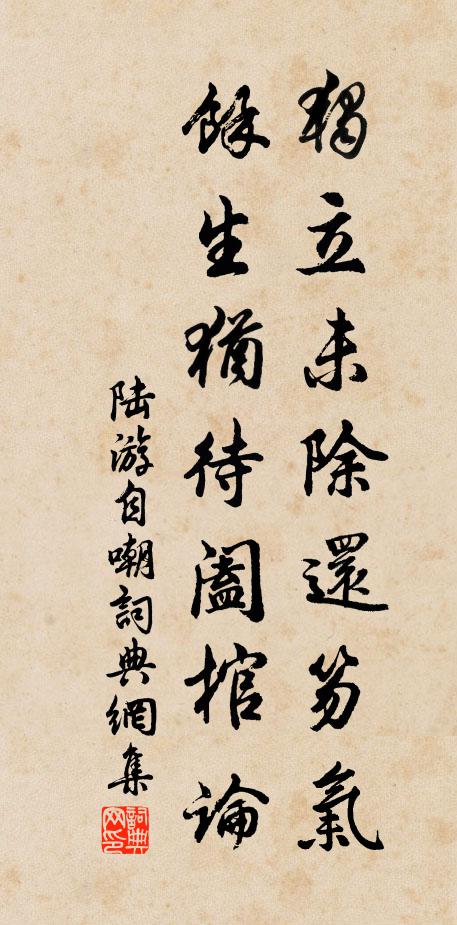 獨立未除還笏氣
餘生猶待闔棺論
陆游自嘲詞典網集
詞典网印